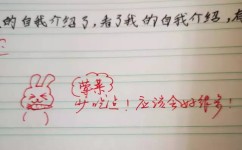 的自我介绍了，看了我的自我介绍，
荤菜
少吃点！应该会好很多！